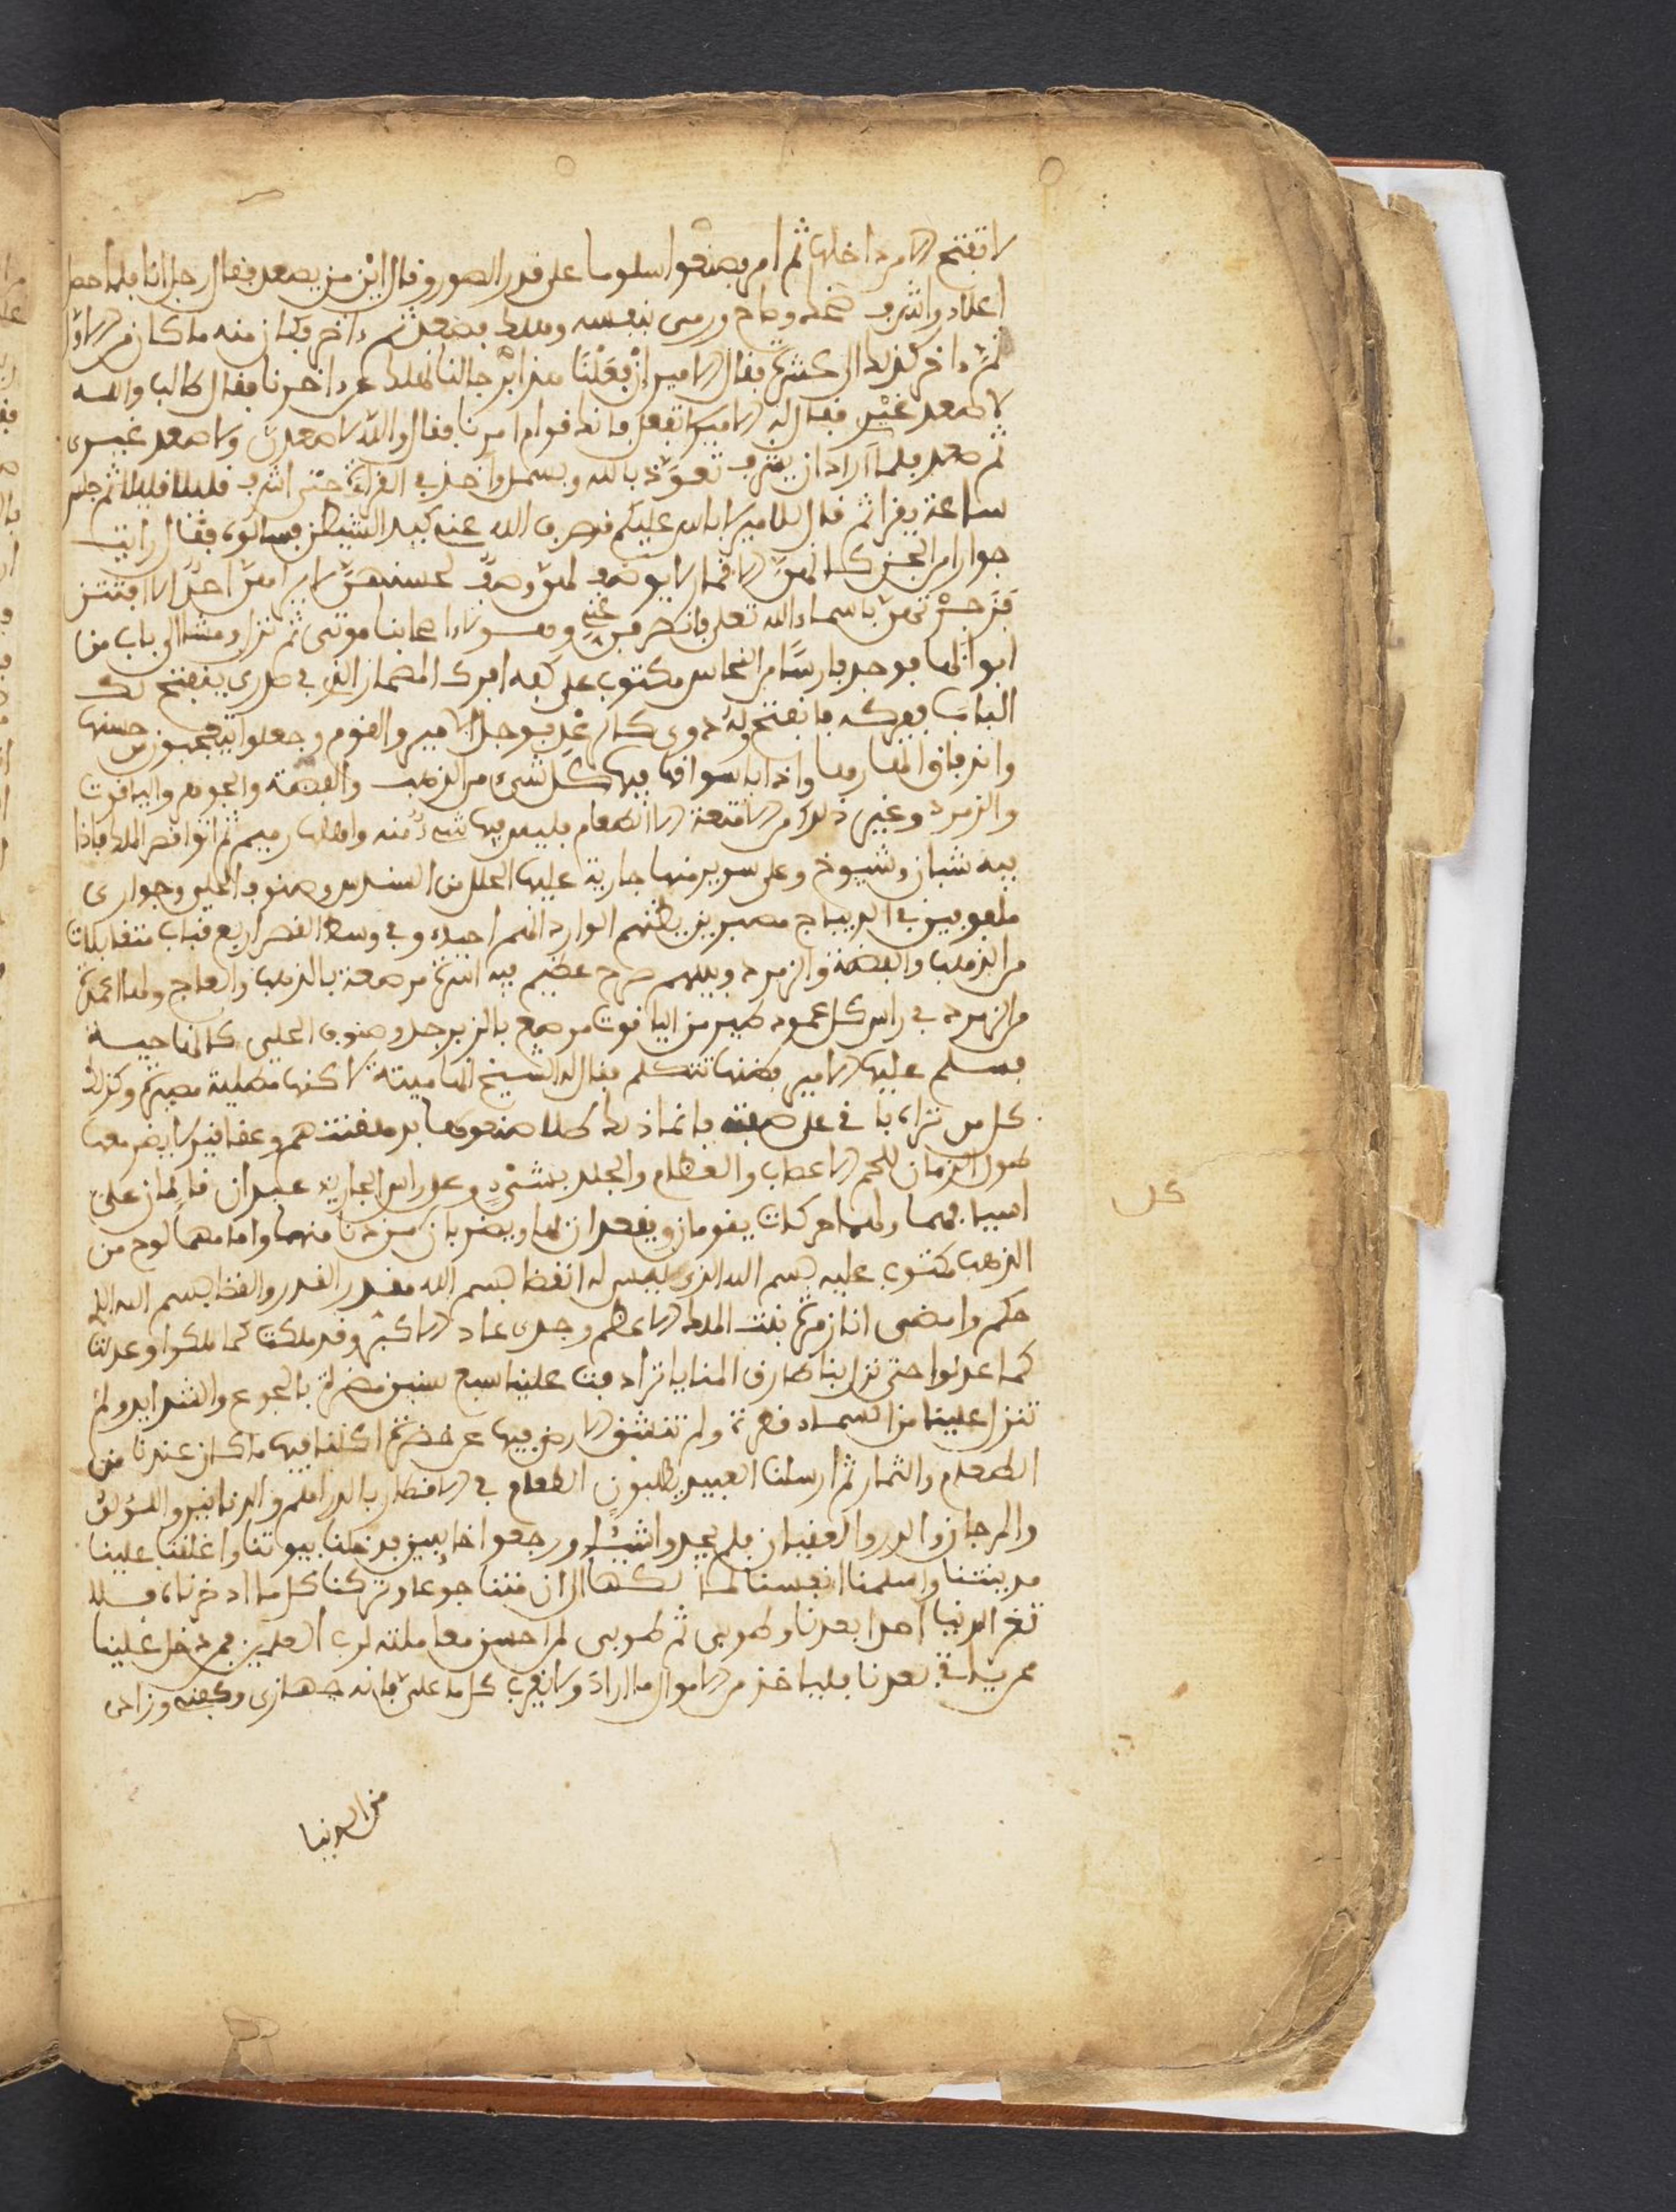 لا تفتح الا من داخلها ثم امر بصنعوا سلوما على قدر الصور وقال اين من يصعد فقال رجل انا فلما حصل
اعلاه واشرف ضحك وصاح ورمى بنفسه وهلك فصعد ثم داخر فكان منه ما كان من الاول
ثم داخر كذلك الى عشرة فقال الامير ان فعلنا هذا برجالنا نهلك عن داخرنا فقال طالب والله
لا صعد غيري فقال له الامير لا تفعل فانك قوام امرنا فقال والله لا صعدن ولا صعد غيري
ثم صعد فلما اراد ان يشرف تعوذ بالله وبسمل واخذ في القراءة حتى اشرف قليلا قليلا ثم جلس
ساعة يقرا ثم قال للامير لا باس عليكم فصرف الله عنه كيد الشيطن فسالوه فقال رايت
جوارا من الجن كانهن الاقمار لا يوصف لهن وصف لحسنهن لا يراهن احد الا افتتن
فزجرتهن باسماء الله تعلى فانصرفن عني وهـ اصحابنا موتى ثم نزل ومشا الى باب من
ابوابها فوجد فارسا من النحاس مكتوب على كفه افرك المصمار الذي في صدري ينفتح لك
الباب ففركه فانفتح وله دوي كالرعد فوجل الامير والقوم وجعلوا يتعجبون من حسنها
واذا باسواقها فيها كل شيء من الذهب والفضة والجوهر واليافوت
والزمرد وغير ذلك من الامتعة الا الطعام فليس فيها شيء منه واهلها رميم ثم اتوا قصر الملك فاذا
فيه شبان وشيوخ وعلى سرير منها جارية عليها الحلل من السندس وصنوف الحلي وجواري
ملفوفين في الديباج مصبرين يظنهم الوارد انهم احياء وفي وسط القصر اربع قباب متقابلات
من الذهب والفضة والزمرد وبينهم صرح عظيم فيه اسرة مرصعة بالذهب والعاج ولها اعمدة
من الزمرد في راس كل عمود طير من اليافوت مرصع بالزبرجد وصنوف الحلي كانها حيـة
فسلم عليها الامير بظنها تتكلم فقال له الشيخ انها ميتة لا كنها مطلية مصبرة وكذلك
كل من تراه باقي على صفته فانما ذلك طلا صنعوها بر معنتهم وعقاقير لا يضر معها
طول الزمان للحم الاعصاب والعظام والجلد بشيء وعلى راس الجارية عبدان قائمان على
اسيافهما ولهما حركات يقومان ويقعدان لها ويضربان من دنا منها وامامهما لوح من
الذهب مكتوب عليه بسم الله الذي ليس له انقضا بسم الله مقدر القدر والقضا بسم الله الذي
حكم وامضى انا زمرة بنت الملك الاعظم وجدى عاد الاكبر وقد ملكت كما ملكوا وعدلت
كما عدلوا حتى نزل بنا طارق المنايا ترادفت علينا سبع سنين مضرة بالجوع والشدايد ولم
تنزل علينا من السماء قطرة ولم تنشق الارض فيها عن خضرة اكلنا فيها ما كان عندنا من
الطعام والثمار ثم ارسلنا العبيد يطلبون الطعام في الاقطار بالدراهم والدنانير واللؤلؤ
والمرجان والدر والعقيان فلم يجدوا شيئا ورجعوا خايبين فدخلنا بيوتنا واغلقنا علينا
مدينتنا واسلمنا انفسنا لما لكها الى ان متنا جوعا وتركنا كل ما ادخرناه فلا
تغر الدنيا احدا بعدنا وطوبى ثم طوبى لمن احسن معاملته لرب العلمين فمن دخل علينا
مدينتنا بعدنا فلياخذ من الاموال ما اراد ولا يقرب كل ما علي فانه جهازي وكفنه وزادى
من الدنيا
كل